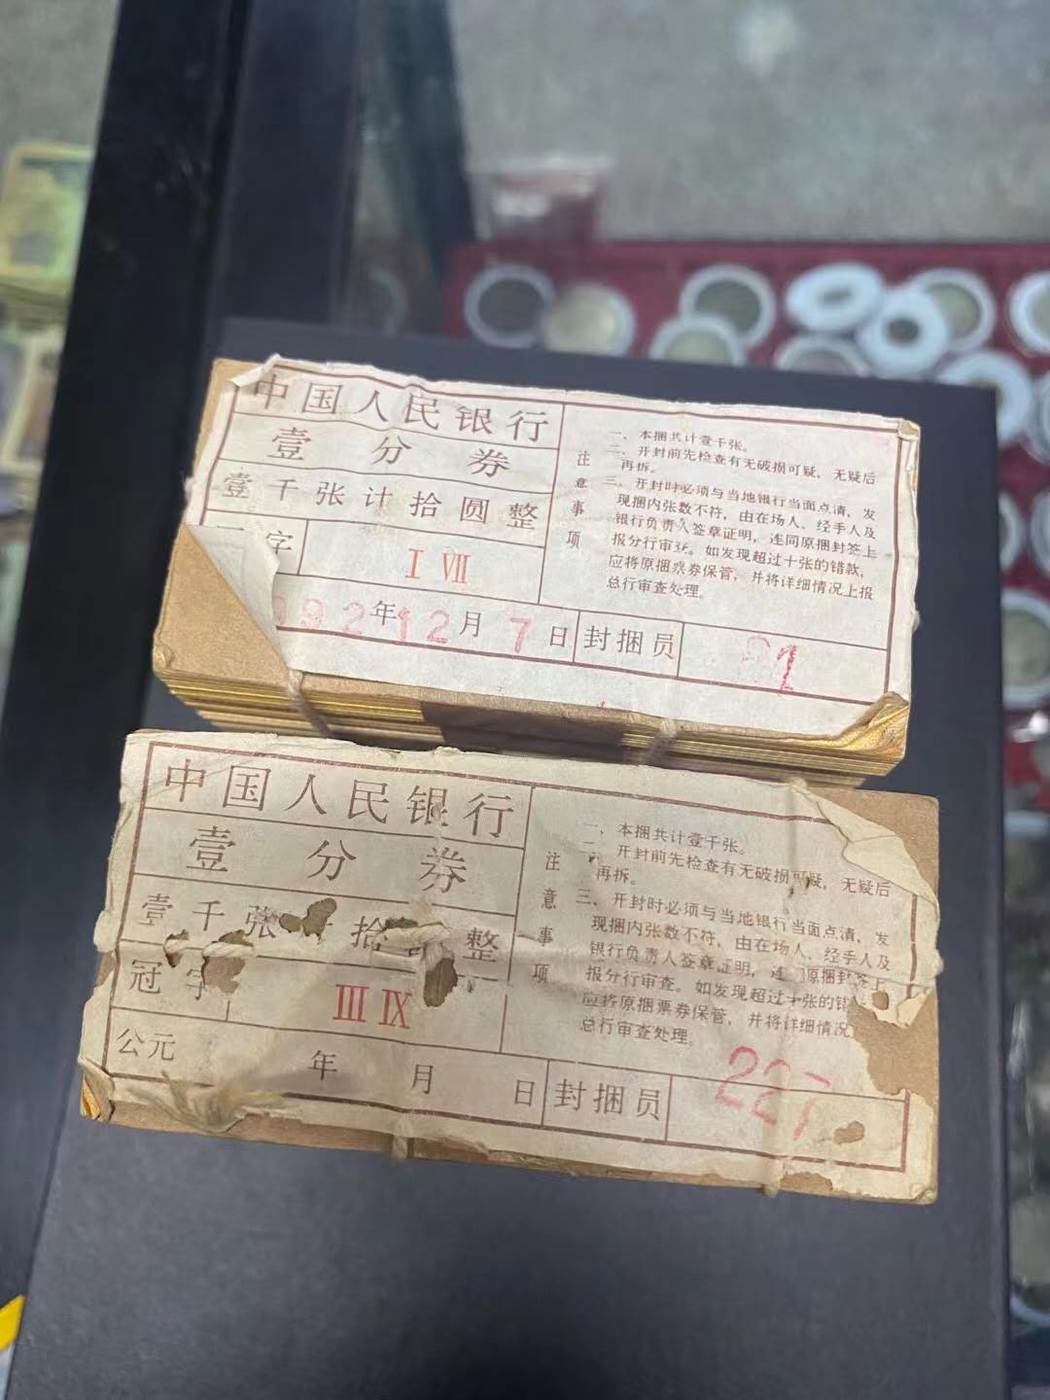 中国人民银行
壹分券
壹千张计拾圆整
字 I VII
92年12月7日 封捆员 81
注意事项
一、本捆共计壹千张。
二、开封前先检查有无破损可疑，无疑后
再拆。
三、开封时必须与当地银行当面点清，发
现捆内张数不符，由在场人、经手人及
银行负责人签章证明，连同原捆封签上
报分行审查。如发现超过十张的错款，
应将原捆票券保管，并将详细情况上报
总行审查处理。
中国人民银行
壹分券
壹千张 拾 整
冠字 III IX
公元 年 月 日 封捆员 227
注意事项
一、本捆共计壹千张。
二、开封前先检查有无破损可疑，无疑后
再拆。
三、开封时必须与当地银行当面点清，发
现捆内张数不符，由在场人、经手人及
银行负责人签章证明，连 原捆封签上
报分行审查。如发现超过十张的错
应将原捆票券保管，并将详细情况
总行审查处理。